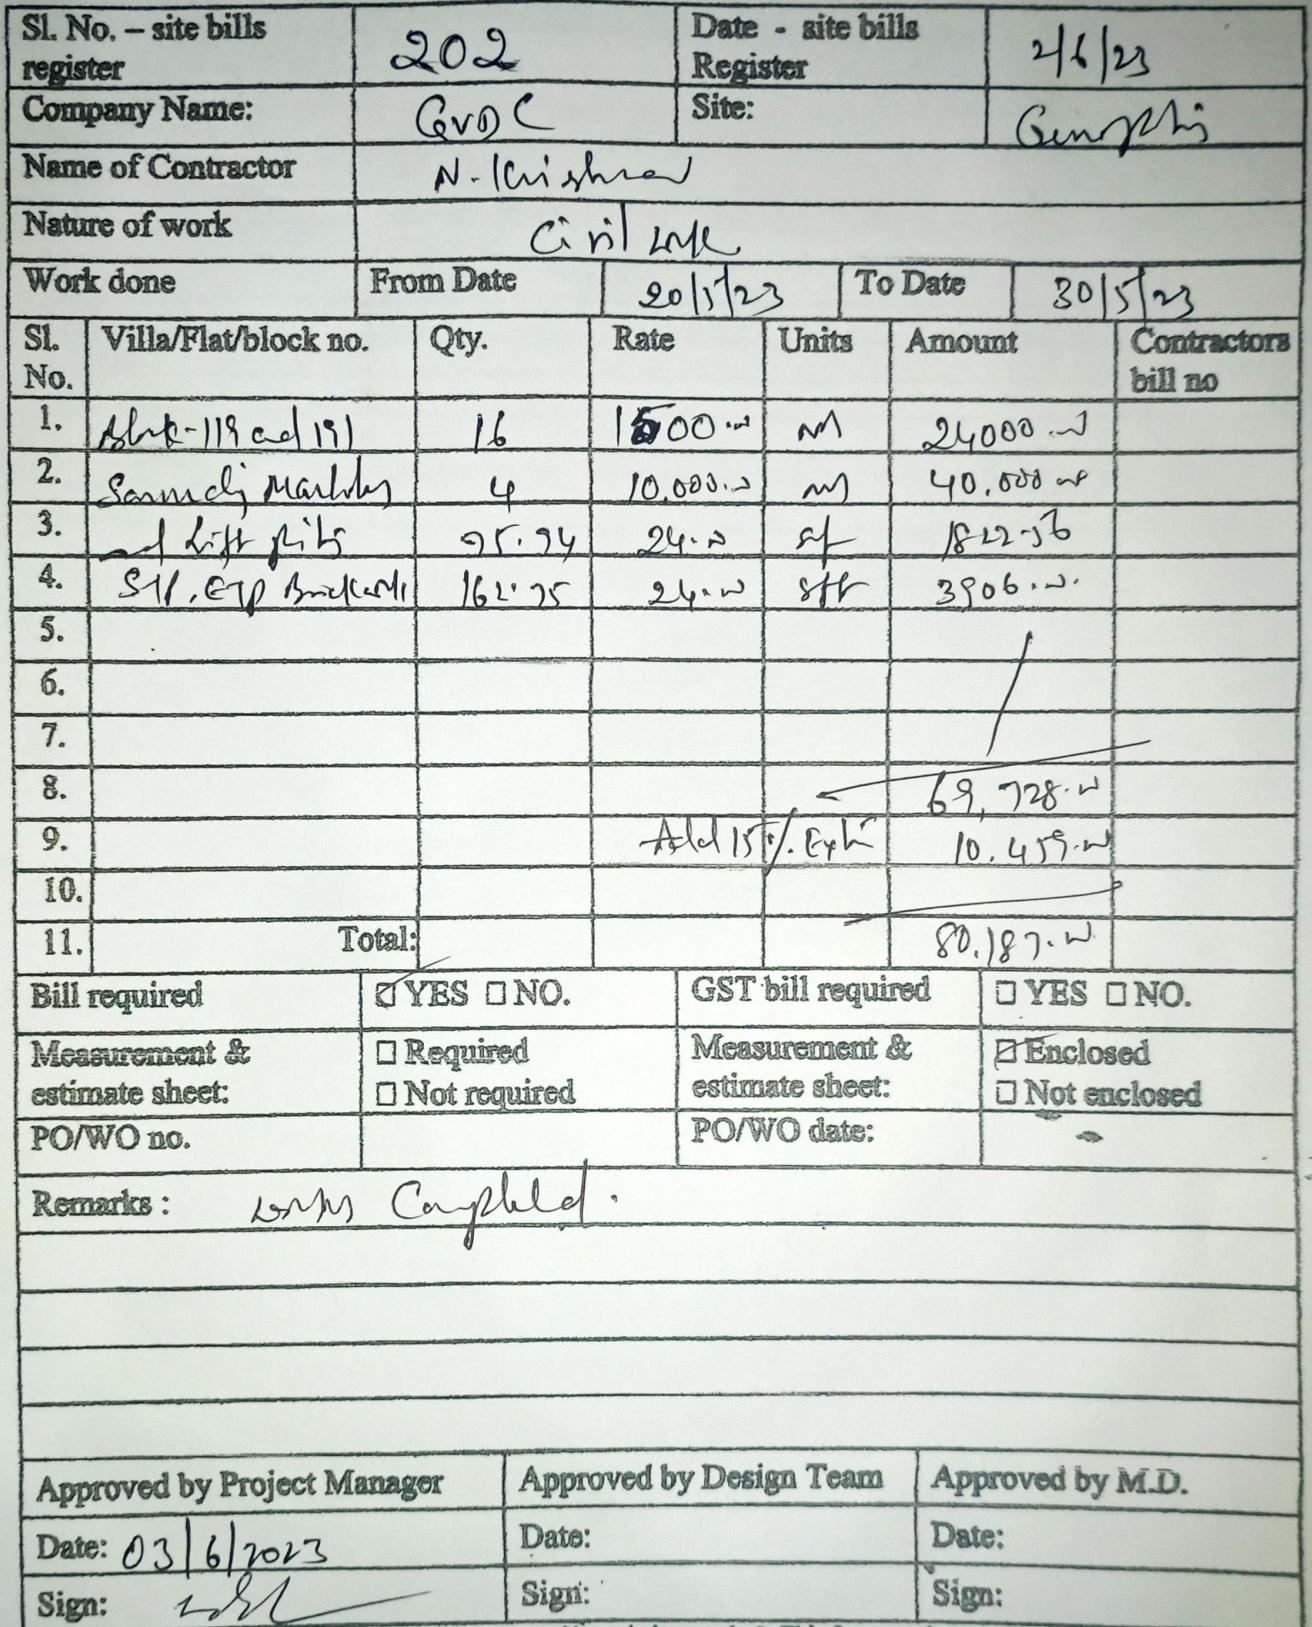 Sl. No. – site bills register 202 Date - site bills Register 2/6/23
Company Name: GVDC Site:
Name of Contractor N. Krishna
Nature of work Civil work
Work done From Date 20/5/23 To Date 30/5/23
Sl. No. Villa/Flat/block no. Qty. Rate Units Amount Contractors bill no
1. Block-119 and 191 16 1500.00 24000.00
2. 4 10.000.00 40.000.00
3. and Lift pits 75.94 24.00 sft 1822.56
4. STP, ETP Brickwork 162.75 24.00 sft 3906.00
5.
6.
7.
8. 69,728.00
9. Add 15% Extra 10.459.00
10.
11. Total: 80.187.00
Bill required ☑ YES ☐ NO. GST bill required ☐ YES ☐ NO.
Measurement & estimate sheet: ☐ Required ☐ Not required Measurement & estimate sheet: ☑ Enclosed ☐ Not enclosed
PO/WO no. PO/WO date:
Remarks : works Completed.
Approved by Project Manager Approved by Design Team Approved by M.D.
Date: 03/6/2023 Date: Date:
Sign: Sign: Sign: